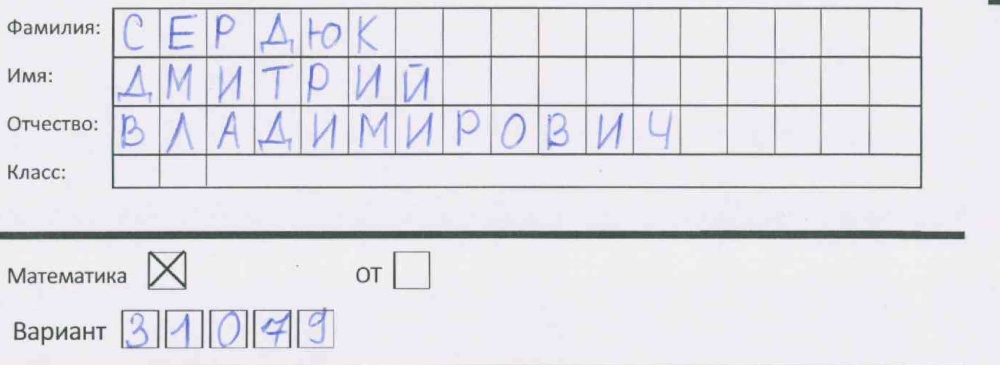 Фамилия: СЕРДЮК
Имя: ДМИТРИЙ
Отчество: ВЛАДИМИРОВИЧ
Класс:
Математика ☒ ОТ ☐
Вариант 31079